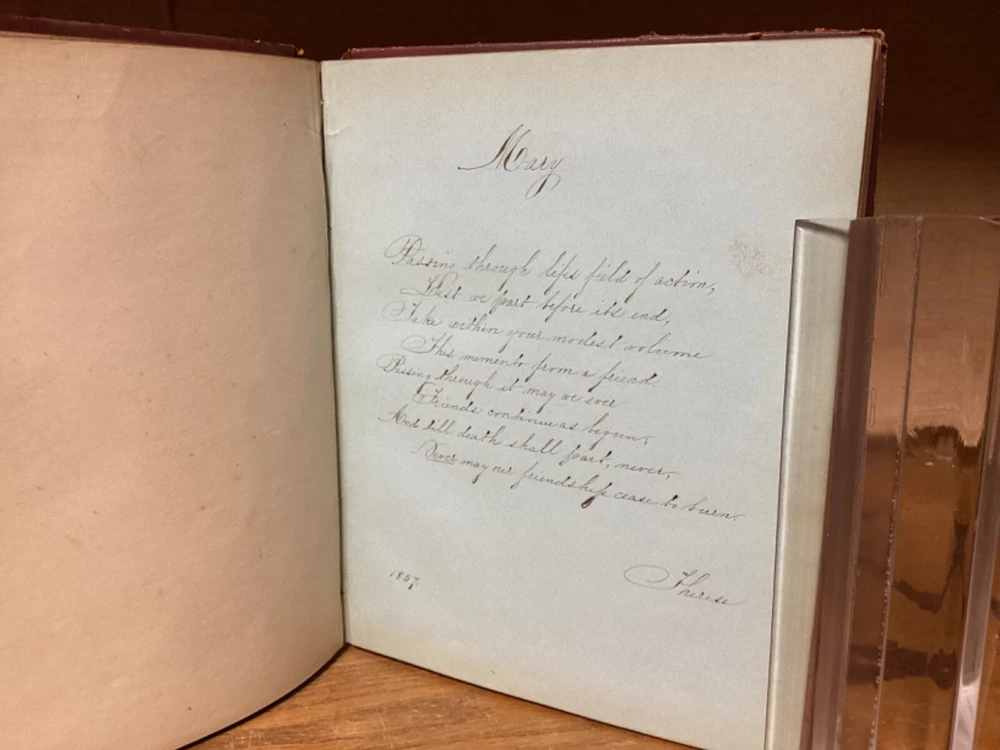 Mary
Passing through lifes field of action,
Lest we part before its end,
Take within your modest volume
This momento from a friend.
Passing through it may we ever
Friends continue as begun,
And till death shall part, never,
Never may our friendship cease to burn.
1857.
Therese